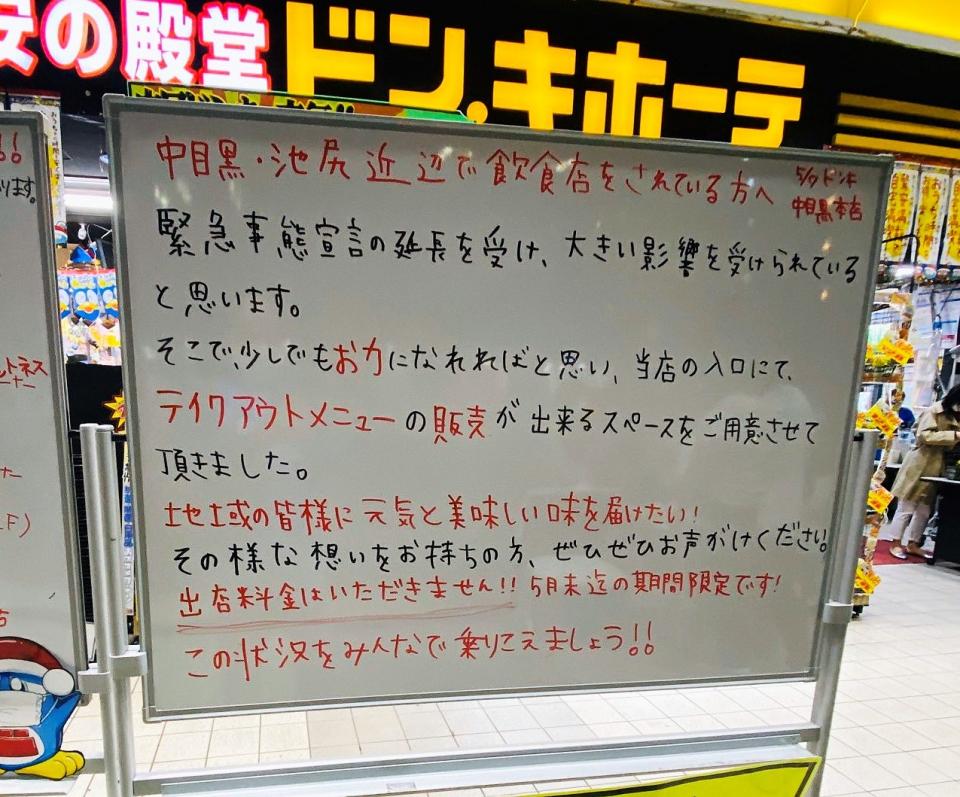 の殿堂 ドン.キホーテ
中目黒・池尻近辺で飲食店をされている方へ
5/9 ドンキ
中目黒本店
緊急事態宣言の延長を受け、大きい影響を受けられている
と思います。
そこで、少しでもお力になれればと思い、当店の入口にて、
テイクアウトメニューの販売が出来るスペースをご用意させて
頂きました。
地域の皆様に元気と美味しい味を届けたい!
その様な想いをお持ちの方、ぜひぜひお声がけください。
出店料金はいただきません!! 5月末迄の期間限定です!
この状況をみんなで乗りこえましょう!!